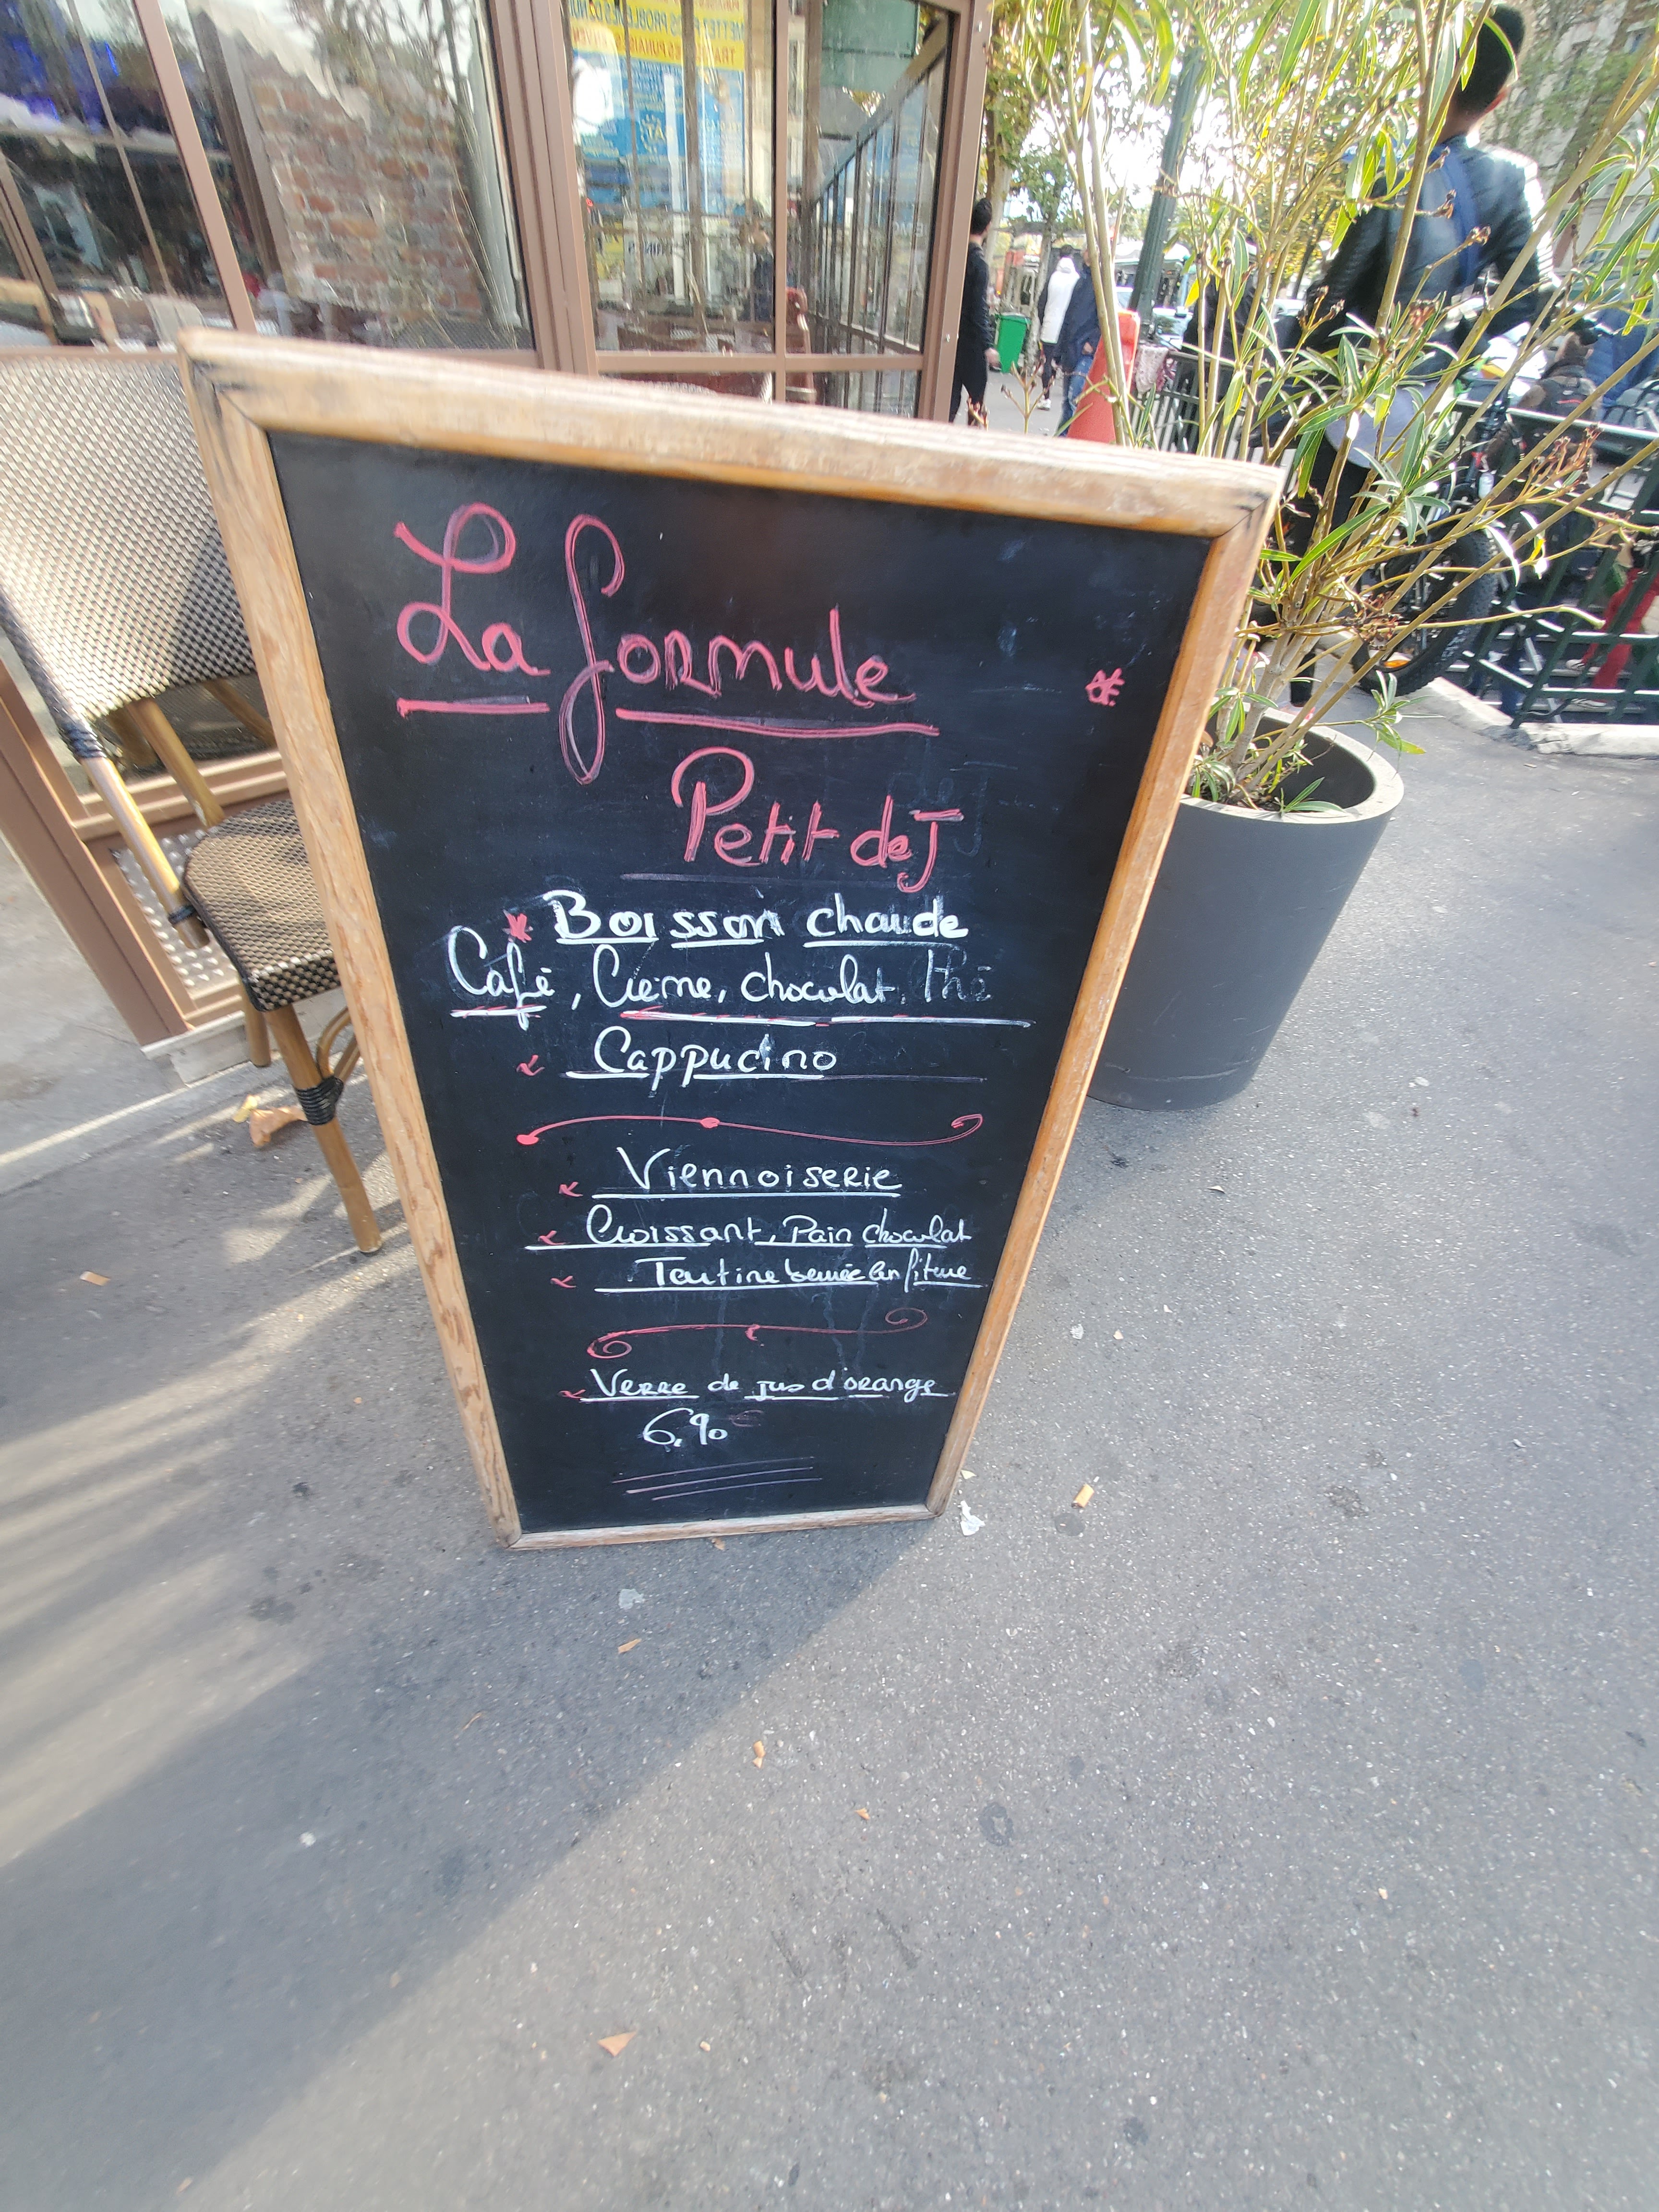 La formule
Petit deJ
Boisson chaude
Café, Crème, chocolat, Thé
Cappucino
Viennoiserie
Croissant, Pain chocolat
Tartine beurrée Confiture
Verre de jus d'orange
6,90€